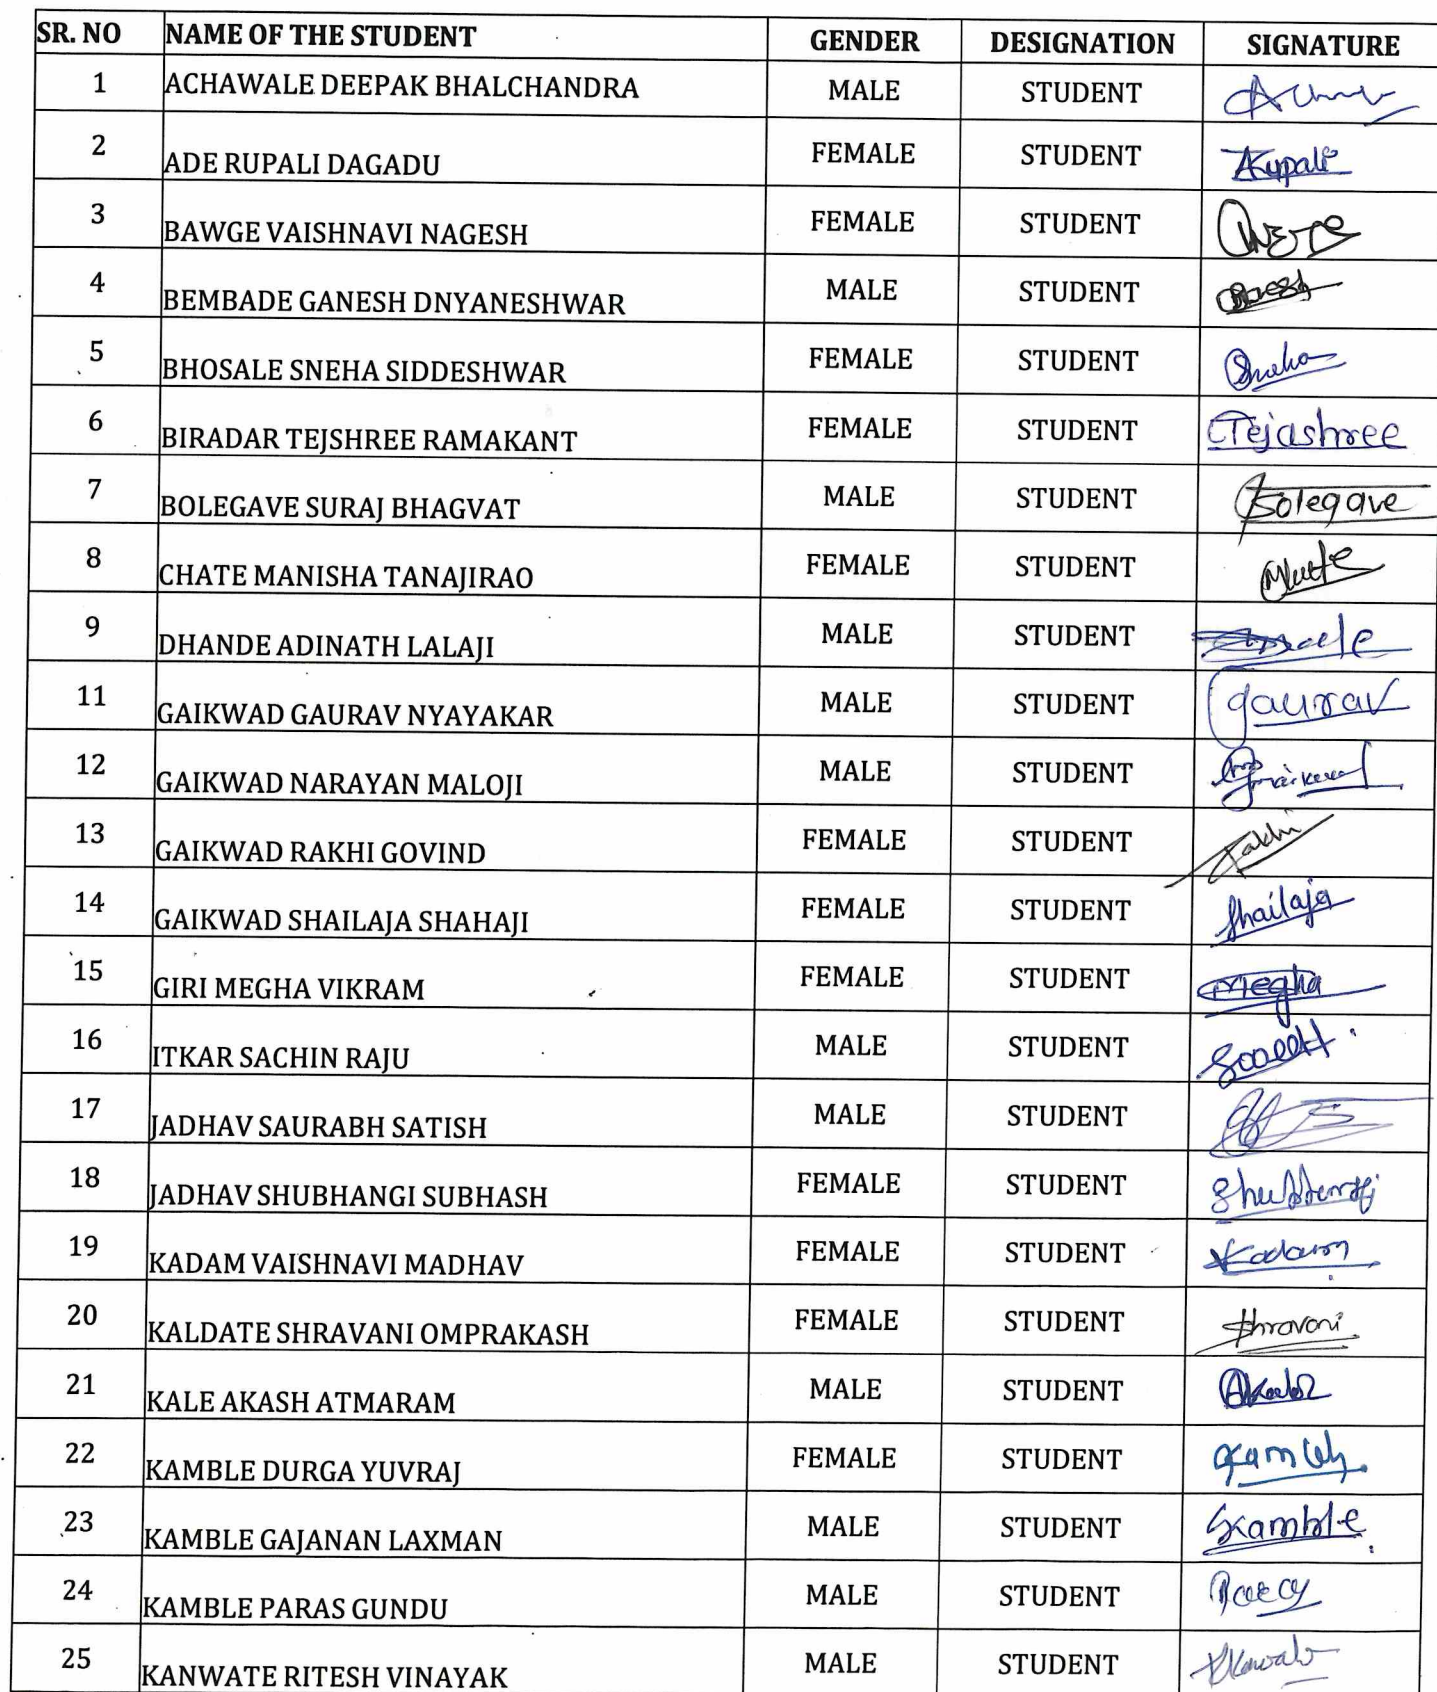 SR. NO NAME OF THE STUDENT GENDER DESIGNATION SIGNATURE
1 ACHAWALE DEEPAK BHALCHANDRA MALE STUDENT
2 ADE RUPALI DAGADU FEMALE STUDENT Rupali
3 BAWGE VAISHNAVI NAGESH FEMALE STUDENT
4 BEMBADE GANESH DNYANESHWAR MALE STUDENT
5 BHOSALE SNEHA SIDDESHWAR FEMALE STUDENT Sneha
6 BIRADAR TEJSHREE RAMAKANT FEMALE STUDENT Tejashree
7 BOLEGAVE SURAJ BHAGVAT MALE STUDENT Bolegave
8 CHATE MANISHA TANAJIRAO FEMALE STUDENT
9 DHANDE ADINATH LALAJI MALE STUDENT
11 GAIKWAD GAURAV NYAYAKAR MALE STUDENT gaurav
12 GAIKWAD NARAYAN MALOJI MALE STUDENT
13 GAIKWAD RAKHI GOVIND FEMALE STUDENT Rakhi
14 GAIKWAD SHAILAJA SHAHAJI FEMALE STUDENT Shailaja
15 GIRI MEGHA VIKRAM FEMALE STUDENT Megha
16 ITKAR SACHIN RAJU MALE STUDENT
17 JADHAV SAURABH SATISH MALE STUDENT
18 JADHAV SHUBHANGI SUBHASH FEMALE STUDENT
19 KADAM VAISHNAVI MADHAV FEMALE STUDENT Kadam
20 KALDATE SHRAVANI OMPRAKASH FEMALE STUDENT Shravani
21 KALE AKASH ATMARAM MALE STUDENT
22 KAMBLE DURGA YUVRAJ FEMALE STUDENT
23 KAMBLE GAJANAN LAXMAN MALE STUDENT Kamble
24 KAMBLE PARAS GUNDU MALE STUDENT
25 KANWATE RITESH VINAYAK MALE STUDENT